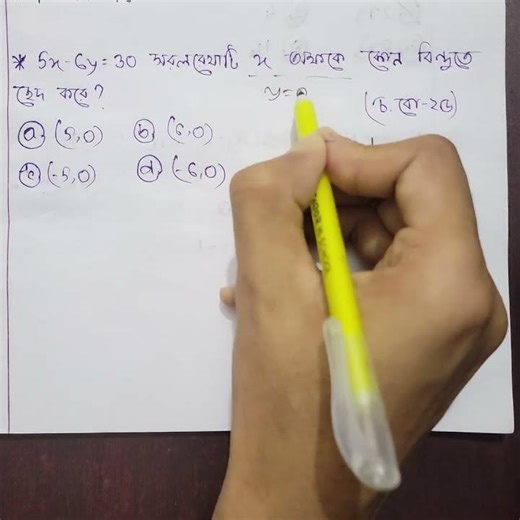 * 5x-6y=30 সরলরেখাটি x অক্ষকে কোন বিন্দুতে
ছেদ করে?
y=0
(চ. বো-২৫)
ⓐ (5,0) ⓑ (6,0)
ⓒ (-5,0) ⓓ (-6,0)